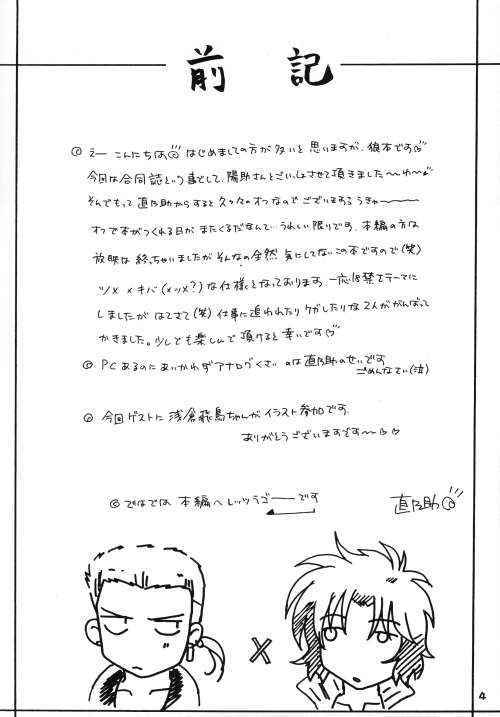 前記
えー こんにちはっ はじめましての方が多いと思いますが、狼本です
今回は合同誌という事でして、陽助さんとごいっしょさせて頂きました〜わ〜
そんでもって直乃助からすると久々のオフなのでございまするうきゃ〜
オフで本がつくれる日がまたくるだなんて、うれしい限りです。本編の方は
放映は終っちゃいましたがそんなの全然気にしてないこの本ですので(笑)
ツメ×キバ(×ツメ?)な仕様となっております。一応 禁をテーマに
しましたが はてさて(笑) 仕事に追われたりケガしたりな2人ががんばって
かきました。少しでも楽しんで頂けると幸いです
PCあるのにあいかわらずアナログくさいのは直乃助のせいです
ごめんなさい(泣)
今回ゲストに浅倉飛鳥ちゃんがイラスト参加です。
ありがとうございますです〜
ではでは 本編へレッツラゴーです
直乃助
×
4